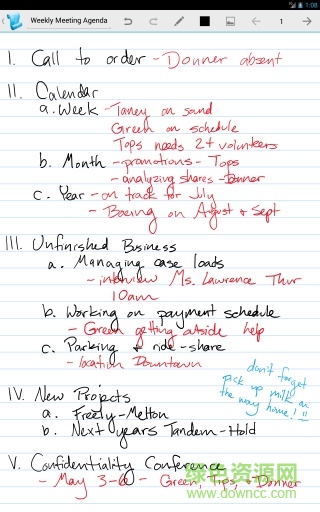 1:08
Weekly Meeting Agenda
1
I. Call to order - Donner absent
II. Calendar
a. Week - Taney on sound
Green on schedule
Tops needs 2+ volunteers
b. Month - promotions - Tops
- analyzing shares - Donner
c. Year - on track for July
- Boeing on August & Sept
III. Unfinished Business
a. Managing case loads
- interview Ms. Lawrence Thur
10am
b. Working on payment schedule
- Green getting outside help
c. Parking & ride-share
- location Downtown
don't forget
pick up milk on
the way home!
IV. New Projects
a. Freety - Melton
b. Next years Tandem - Hold
V. Confidentiality Conference
- May 3-6 - Green, Tips, + Donner
绿色资源网
www.downcc.com